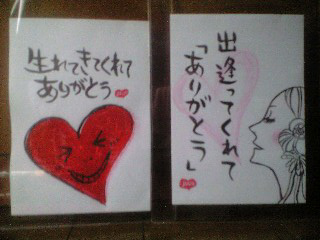 生れてきてくれて
ありがとう
出逢ってくれて
「ありがとう」